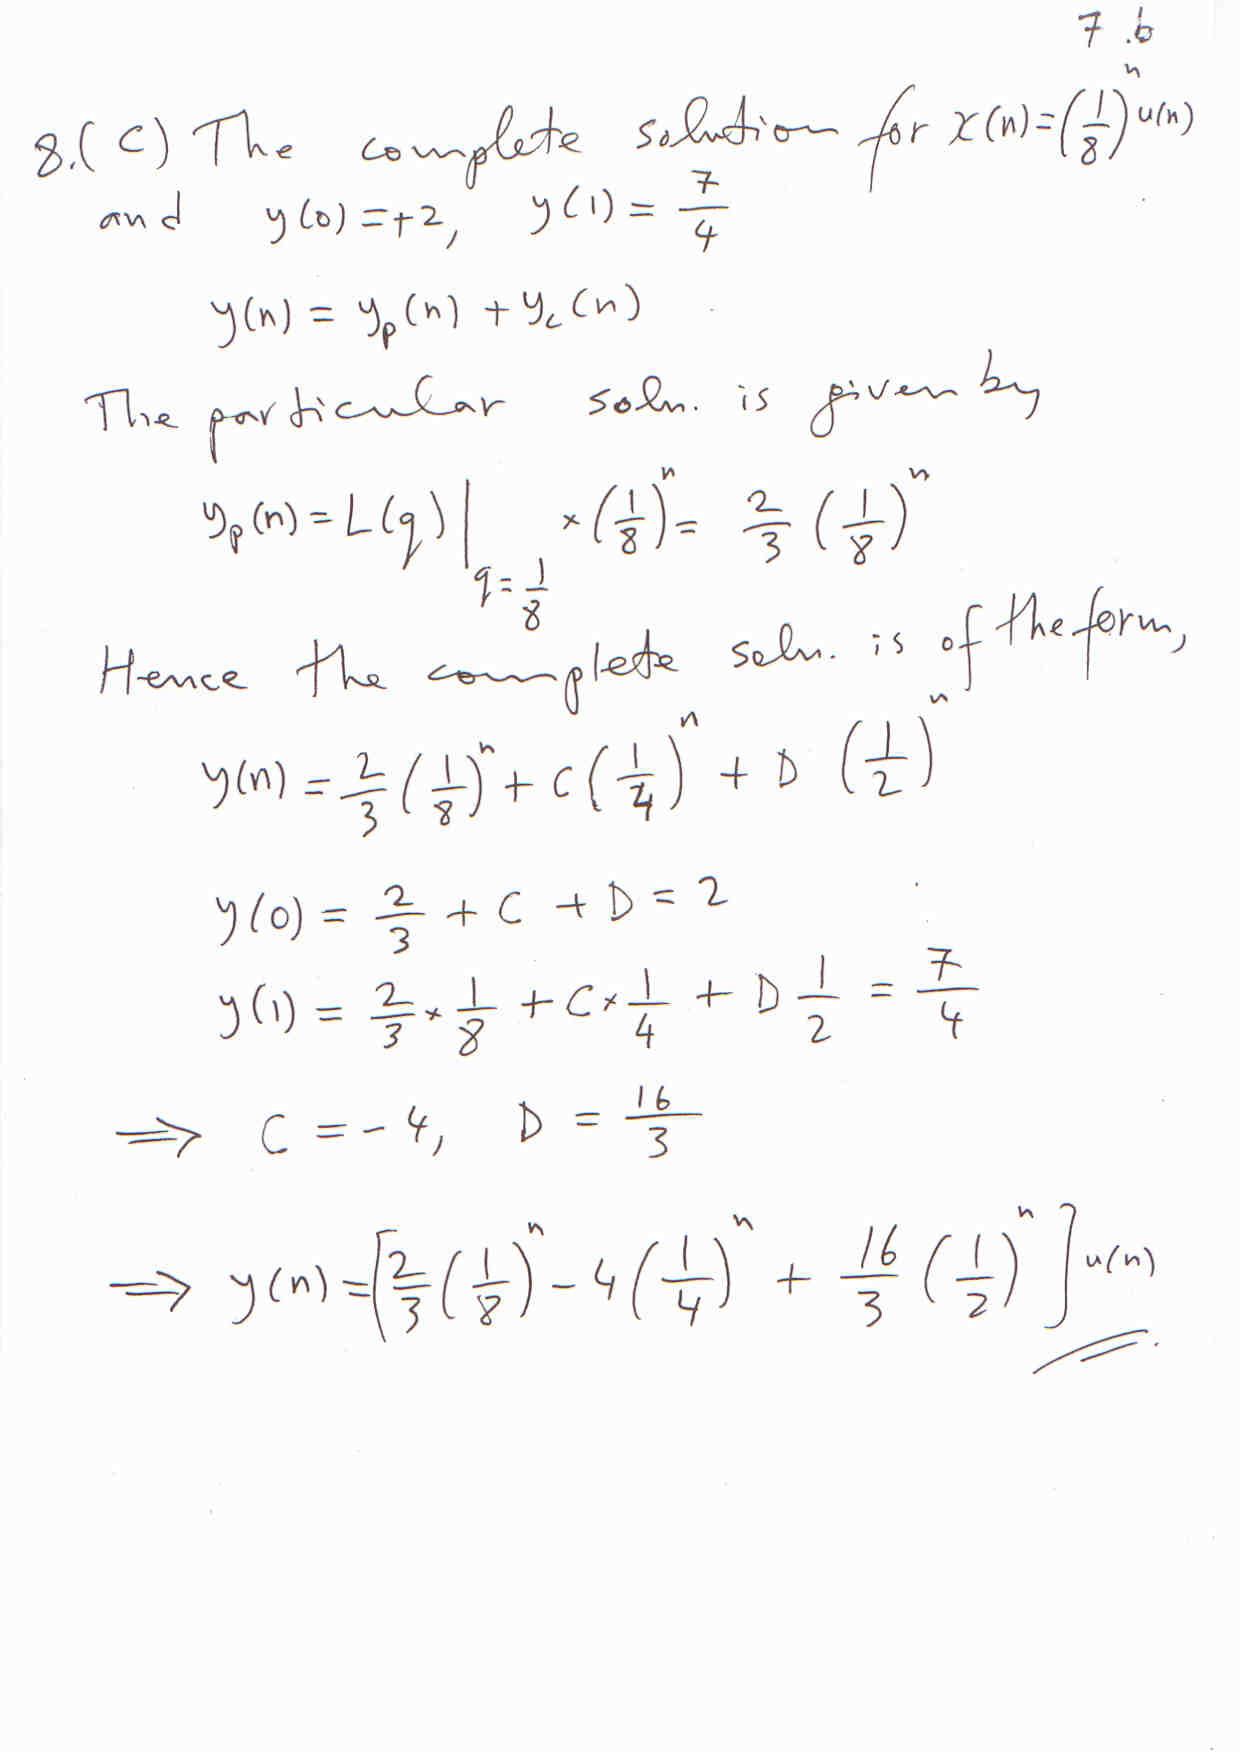 7.b
8.(C) The complete solution for x(n)=(1/8)^n u(n)
and y(0)=+2, y(1) = 7/4
y(n) = y_p(n) + y_c(n)
The particular soln. is given by
y_p(n) = L(q)|_{q=1/8} × (1/8)^n = 2/3 (1/8)^n
Hence the complete soln. is of the form,
y(n) = 2/3 (1/8)^n + C(1/4)^n + D (1/2)^n
y(0) = 2/3 + C + D = 2
y(1) = 2/3 × 1/8 + C × 1/4 + D 1/2 = 7/4
⟹ C = -4, D = 16/3
⟹ y(n) = [2/3 (1/8)^n - 4 (1/4)^n + 16/3 (1/2)^n] u(n)